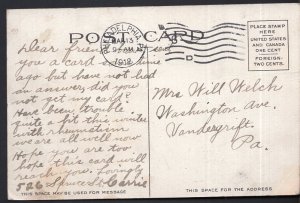 POST CARD
PHILADELPHIA
MAR 13
1912
D
PLACE STAMP
HERE
UNITED STATES
AND CANADA
ONE CENT
FOREIGN:
TWO CENTS.
Dear friend
you a card some time
ago but have not had
an answer, did you
not get my card?
Have been troubled
quite a bit this winter
with rheumatism
we are all well now
Hope you are too
Hope this card will
reach you. Lovingly
526 Spruce St Carrie
Mrs Will Welch
Washington Ave.
Vandergrift.
Pa.
THIS SPACE MAY BE USED FOR MESSAGE
THIS SPACE FOR THE ADDRESS